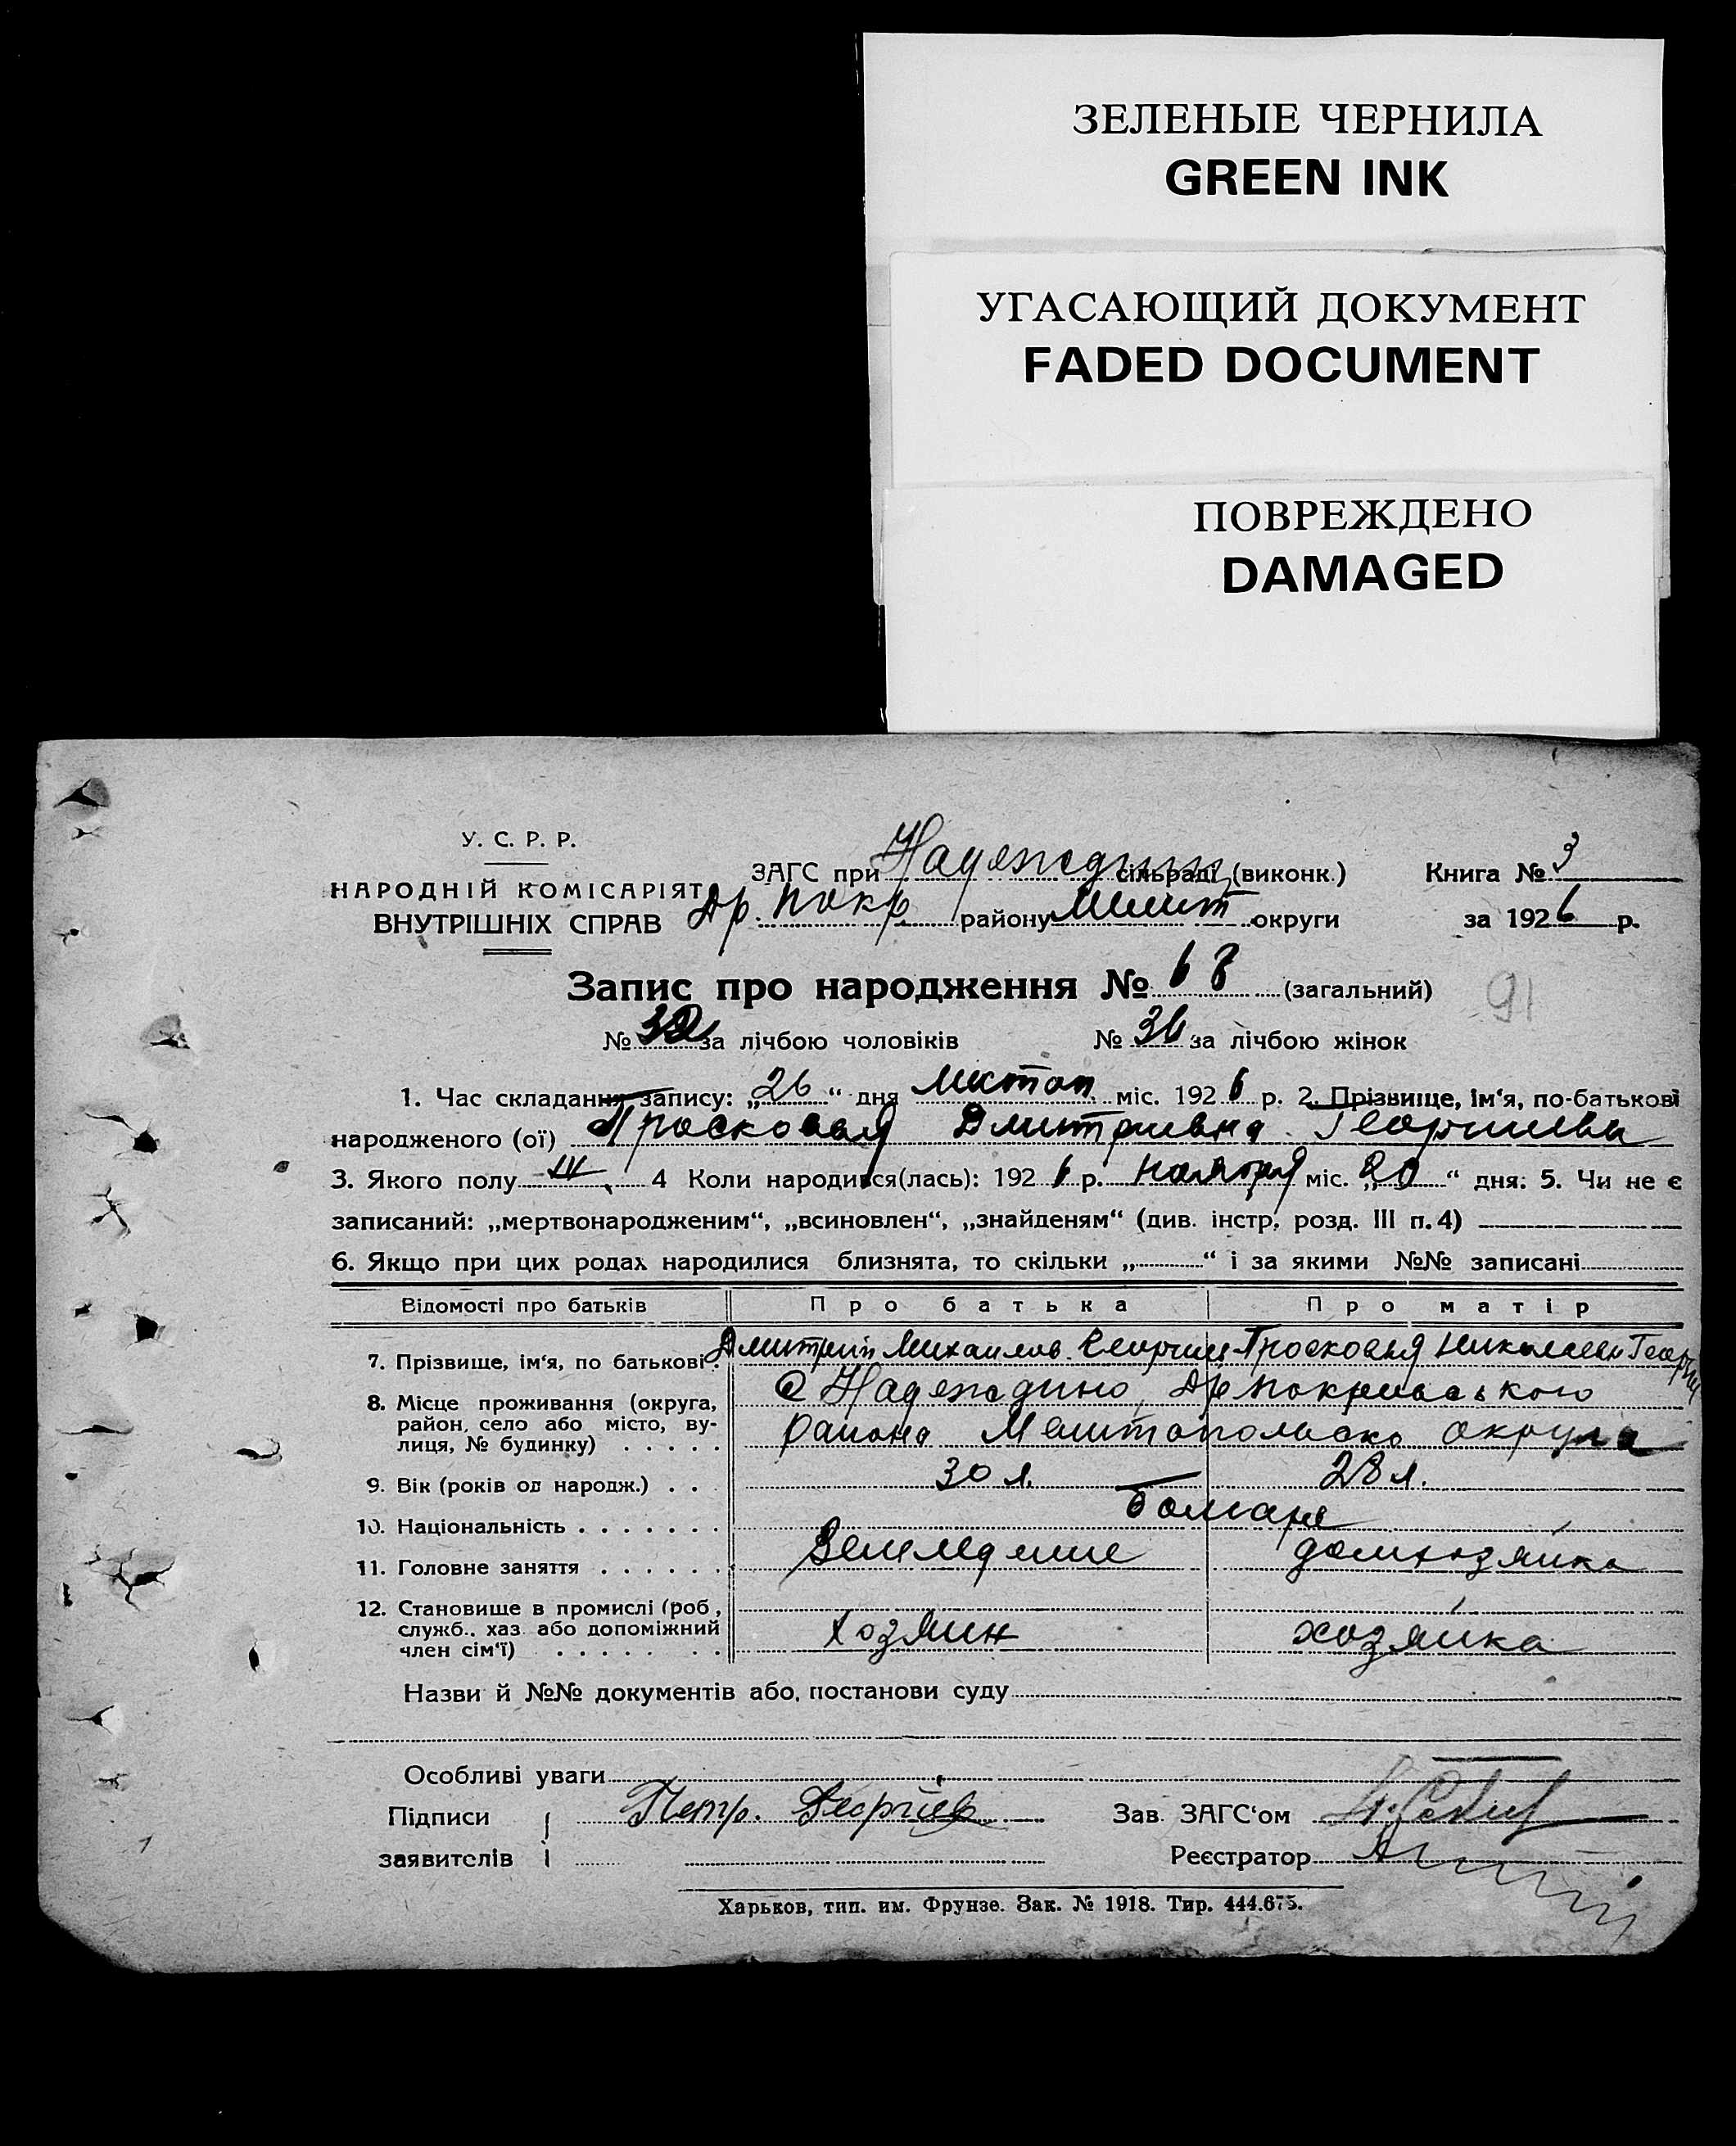 ЗЕЛЕНЫЕ ЧЕРНИЛА
GREEN INK
УГАСАЮЩИЙ ДОКУМЕНТ
FADED DOCUMENT
ПОВРЕЖДЕНО
DAMAGED
У. С. Р. Р.
НАРОДНІЙ КОМІСАРІЯТ
ВНУТРІШНІХ СПРАВ
ЗАГС при Надеждин сільраді (виконк.) Книга № 3
Др. Покр району Мелит округи за 1926 р.
Запис про народження № 68 (загальний)
91
№ 32 за лічбою чоловіків № 36 за лічбою жінок
1. Час складання запису: „26“ дня Листоп. міс. 1926 р. 2. Прізвище, ім‘я, по-батькові
народженого (ої) Просковья Дмитриевна Георгиева
3. Якого полу Ж. 4 Коли народився(лась): 1926 р. ноября міс. „20“ дня. 5. Чи не є
записаний: „мертвонародженим“, „всиновлен“, „знайденям“ (див. інстр. розд. III п. 4)
6. Якщо при цих родах народилися близнята, то скільки „ “ і за якими №№ записані
Відомості про батьків Про батька Про матір
7. Прізвище, ім‘я, по батькові. Дмитрий Михаилов. Георгиев Просковья Николаевн Георги
8. Місце проживання (округа, район, село або місто, вулиця, № будинку) с Надеждино, Др покровського
района Мелитопольско округа
9. Вік (років од народж.) 30 л. 28 л.
10. Національність болгаре
11. Головне заняття Земледелие домхозяйка
12. Становище в промислі (роб., служб., хаз. або допоміжний член сім‘ї) хозяин хозяйка
Назви й №№ документів або постанови суду
Особливі уваги
Підписи Петр. Георгіев Зав. ЗАГС‘ом
заявителів Реєстратор
Харьков, тип. им. Фрунзе. Зак. № 1918. Тир. 444.675.